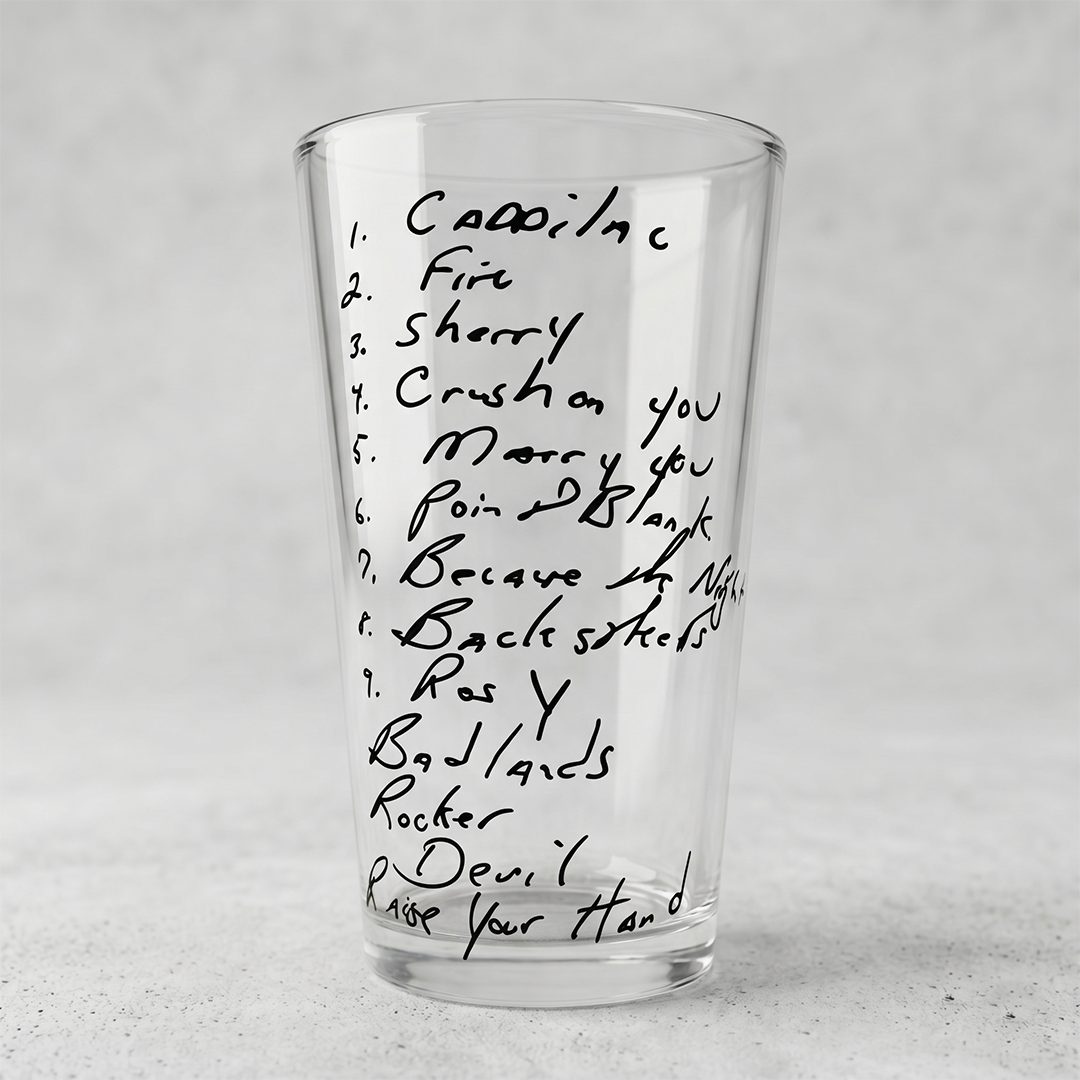 1. Caddilac
2. Fire
3. Sherry
4. Crush on you
5. Marry you
6. Point Blank
7. Because the Night
8. Backstreets
9. Rosy
Badlands
Rocker
Devil
Raise Your Hand